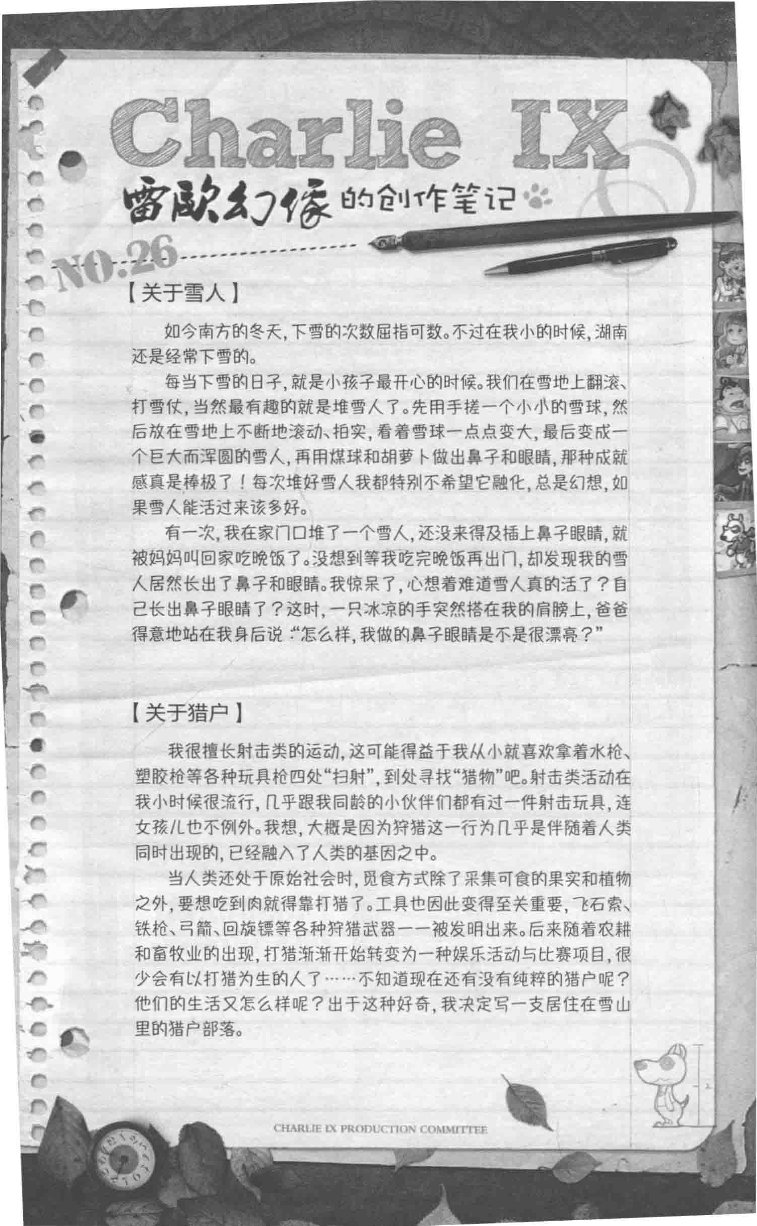 Charlie IX
雷欧幻像的创作笔记
NO.26
【关于雪人】
如今南方的冬天,下雪的次数屈指可数。不过在我小的时候,湖南
还是经常下雪的。
每当下雪的日子,就是小孩子最开心的时候。我们在雪地上翻滚、
打雪仗,当然最有趣的就是堆雪人了。先用手搓一个小小的雪球,然
后放在雪地上不断地滚动、拍实,看着雪球一点点变大,最后变成一
个巨大而浑圆的雪人,再用煤球和胡萝卜做出鼻子和眼睛,那种成就
感真是棒极了!每次堆好雪人我都特别不希望它融化,总是幻想,如
果雪人能活过来该多好。
有一次,我在家门口堆了一个雪人,还没来得及插上鼻子眼睛,就
被妈妈叫回家吃晚饭了。没想到等我吃完晚饭再出门,却发现我的雪
人居然长出了鼻子和眼睛。我惊呆了,心想着难道雪人真的活了?自
己长出鼻子眼睛了?这时,一只冰凉的手突然搭在我的肩膀上,爸爸
得意地站在我身后说:“怎么样,我做的鼻子眼睛是不是很漂亮?”
【关于猎户】
我很擅长射击类的运动,这可能得益于我从小就喜欢拿着水枪、
塑胶枪等各种玩具枪四处“扫射”,到处寻找“猎物”吧。射击类活动在
我小时候很流行,几乎跟我同龄的小伙伴们都有过一件射击玩具,连
女孩儿也不例外。我想,大概是因为狩猎这一行为几乎是伴随着人类
同时出现的,已经融入了人类的基因之中。
当人类还处于原始社会时,觅食方式除了采集可食的果实和植物
之外,要想吃到肉就得靠打猎了。工具也因此变得至关重要,飞石索、
铁枪、弓箭、回旋镖等各种狩猎武器一一被发明出来。后来随着农耕
和畜牧业的出现,打猎渐渐开始转变为一种娱乐活动与比赛项目,很
少会有以打猎为生的人了……不知道现在还有没有纯粹的猎户呢?
他们的生活又怎么样呢?出于这种好奇,我决定写一支居住在雪山
里的猎户部落。
CHARLIE IX PRODUCTION COMMITTEE